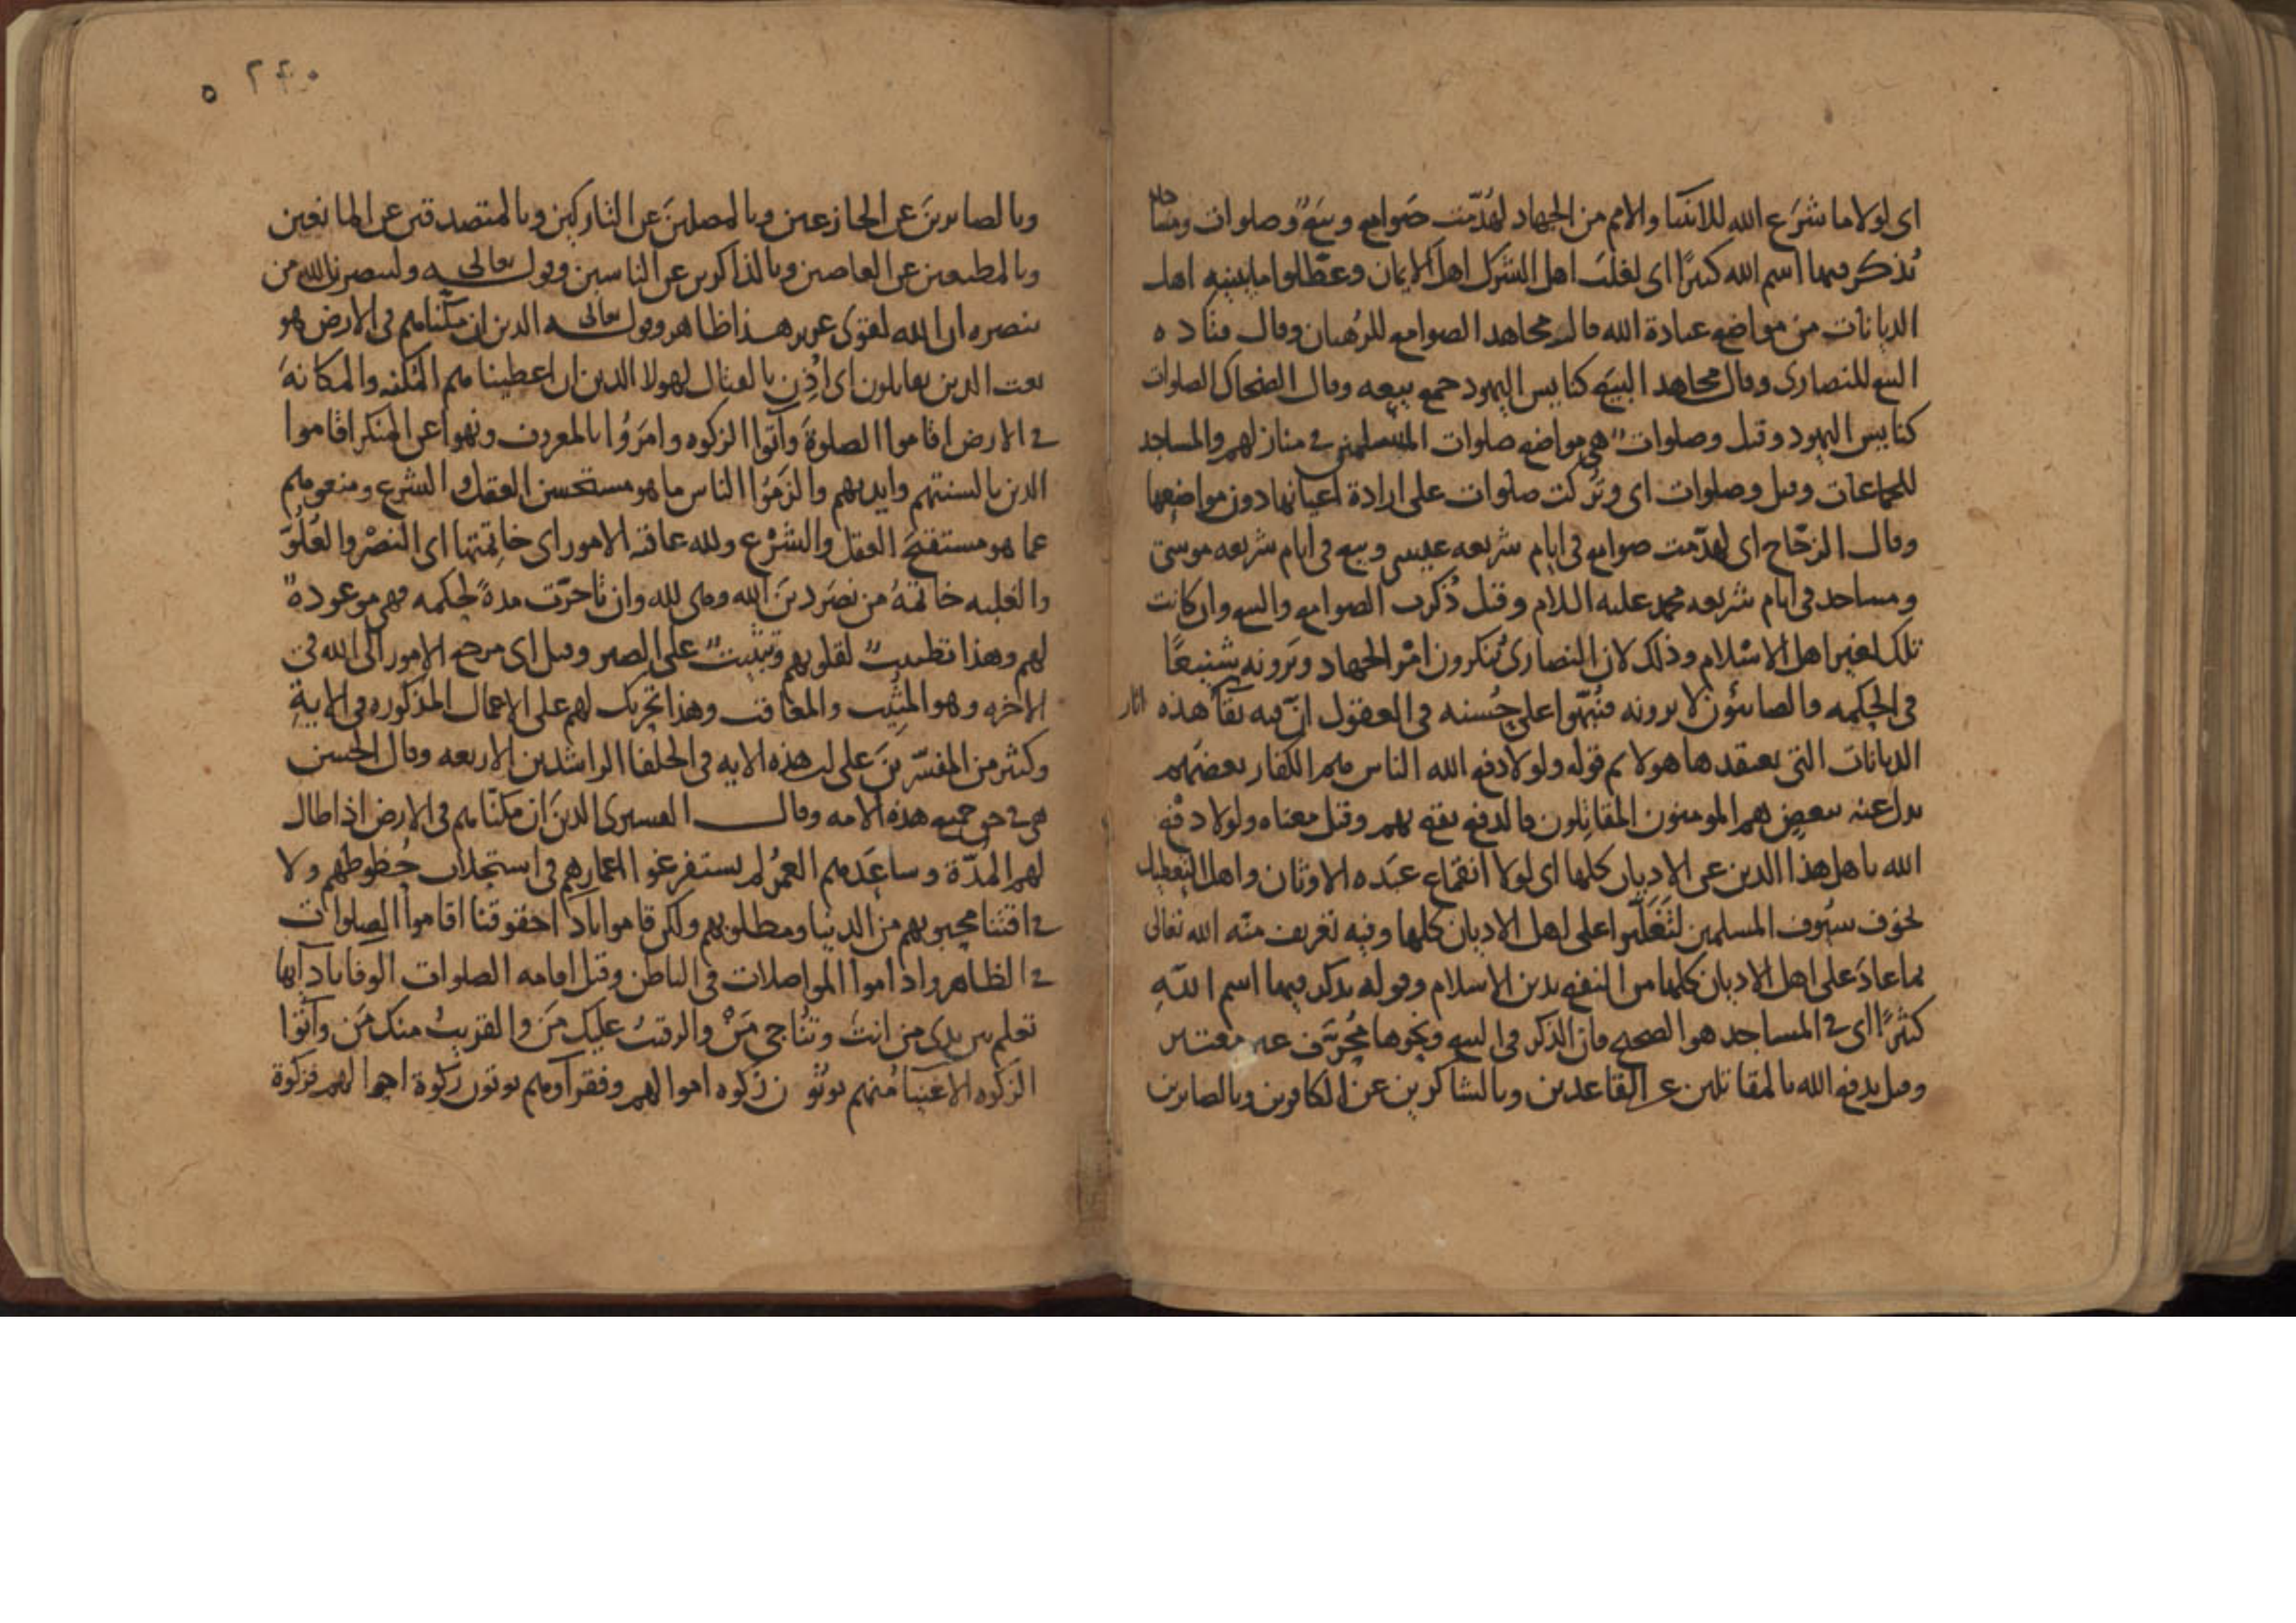 اى لولا ما شرع الله للانبيا والامم من الجهاد لهدّمت صوامع وبيع وصلوات ومساجد
يُذكر فيها اسم الله كثيرًا اى لغلب اهل الشرك اهل الايمان وعطّلوا ما يبنيه اهل
الديانات من مواضع عبادة الله قال مجاهد الصوامع للرهبان وقال قتادة
البيع للنصارى وقال مجاهد البيع كنايس اليهود جمع بيعه وقال الضحاك الصلوات
كنايس اليهود وقيل وصلوات هى مواضع صلوات المسلمين فى منازلهم والمساجد
للجماعات وقيل وصلوات اى وتُركت صلوات على ارادة اعيانها دون مواضعها
وقال الزجّاج اى لهدّمت صوامع فى ايام شريعه عيسى وبيع فى ايام شريعه موسى
ومساجد فى ايام شريعه محمد عليه السلام وقيل ذُكرت الصوامع والبيع وان كانت
تلك لغير اهل الاسلام وذلك لان النصارى يُنكرون امْر الجهاد ويرونه شنيعًا
فى الحكمه والصابئون لا يرونه فنُبّهوا على حُسنه فى العقول انّ فيه بقآ هذه اثار
الديانات التى يعتقدها هولا ثم قوله ولولا دفع الله الناس هم الكفار بعضهم
بدل عنه ببعض هم المومنون المقاتلون فالدفع يقع بهم وقيل معناه ولولا دفع
الله باهل هذا الدين عن الاديان كلها اى لولا انقماع عبَده الاوثان واهل التعطيل
لخوف سيوف المسلمين لتغلّبوا على اهل الاديان كلها وفيه تعريف منّه الله تعالى
بما عادَ على اهل الاديان كلها من النفع بدين الاسلام وقوله يذكر فيها اسم اللهِ
كثيرًا اى فى المساجد هو الصحيح فان الذكر فى البيع ونحوها غير معتبر
وقيل يدفع الله بالمقاتلين عن القاعدين وبالشاكرين عن الكافرين وبالصابرين
٢٤٠
وبالصابرينَ عن الجازعين وبالمصلينَ عن التاركين وبالمتصدقين عن المانعين
وبالمطيعين عن العاصين وبالذاكرين عن الناسين وقوله تعالى ولينصرن الله من
ينصره ان الله لقوى عزيز هذا ظاهر وقوله تعالى الذين ان مكّنّاهم فى الارض هو
نعت الذين يقاتلون اى اُذِن بالقتال لهولا الذين ان اعطيناهم المكنه والمكانهَ
فى الارض اقاموا الصلوةَ وآتوا الزكوه وامَرُوا بالمعروف ونهوا عن المنكر اقاموا
الدين بالسنتهم وايديهم والزمُوا الناس ما هو مستحسن العقل والشرع ومنعوهم
عما هو مستقبح العقل والشرْع ولله عاقبه الامور اى خاتِمتها اى النصْر والعُلُوّ
والغلبه خاتمهُ من نصَر دينَ الله وهى لله وان تاخرّت مدةً لحكمه فهى موعودهٌ
لهم وهذا تطييبٌ لقلوبهم وتثبيتٌ على الصبر وقيل اى مرجع الامور الى الله فى
الاخره وهو المثِيب والمعاقب وهذا تحريك لهم على الاعمال المذكوره فى الايةِ
وكثير من المفسّرينَ على ان هذه الايه فى الخلفا الراشدين الاربعه وقال الحسن
هى فى حق جميع هذه الامه وقال القشيرى الذين ان مكنّاهم فى الارض اذا طال
لهم المُدّة وساعَدهم العمُر لم يستفرغوا اعمارهم فى استجلاب حُظوظهم ولا
فى اقتنا محبوبهم من الدنيا ومطلوبهم ولكن قاموا بادآ حقوقنا اقاموا الصلوات
فى الظاهر واداموا المواصلات فى الباطن وقيل اقامه الصلوات الوفا بادآيها
تعلم بين يدى من انتَ وتُناجى مَنْ والرقيبُ عليك مَن والقريبُ منك مَن وآتوا
الزكوه الاغنيآ منهم يوتون زكوه اموالهم وفقرآوهم يوتون زكوة لهم فزكوة